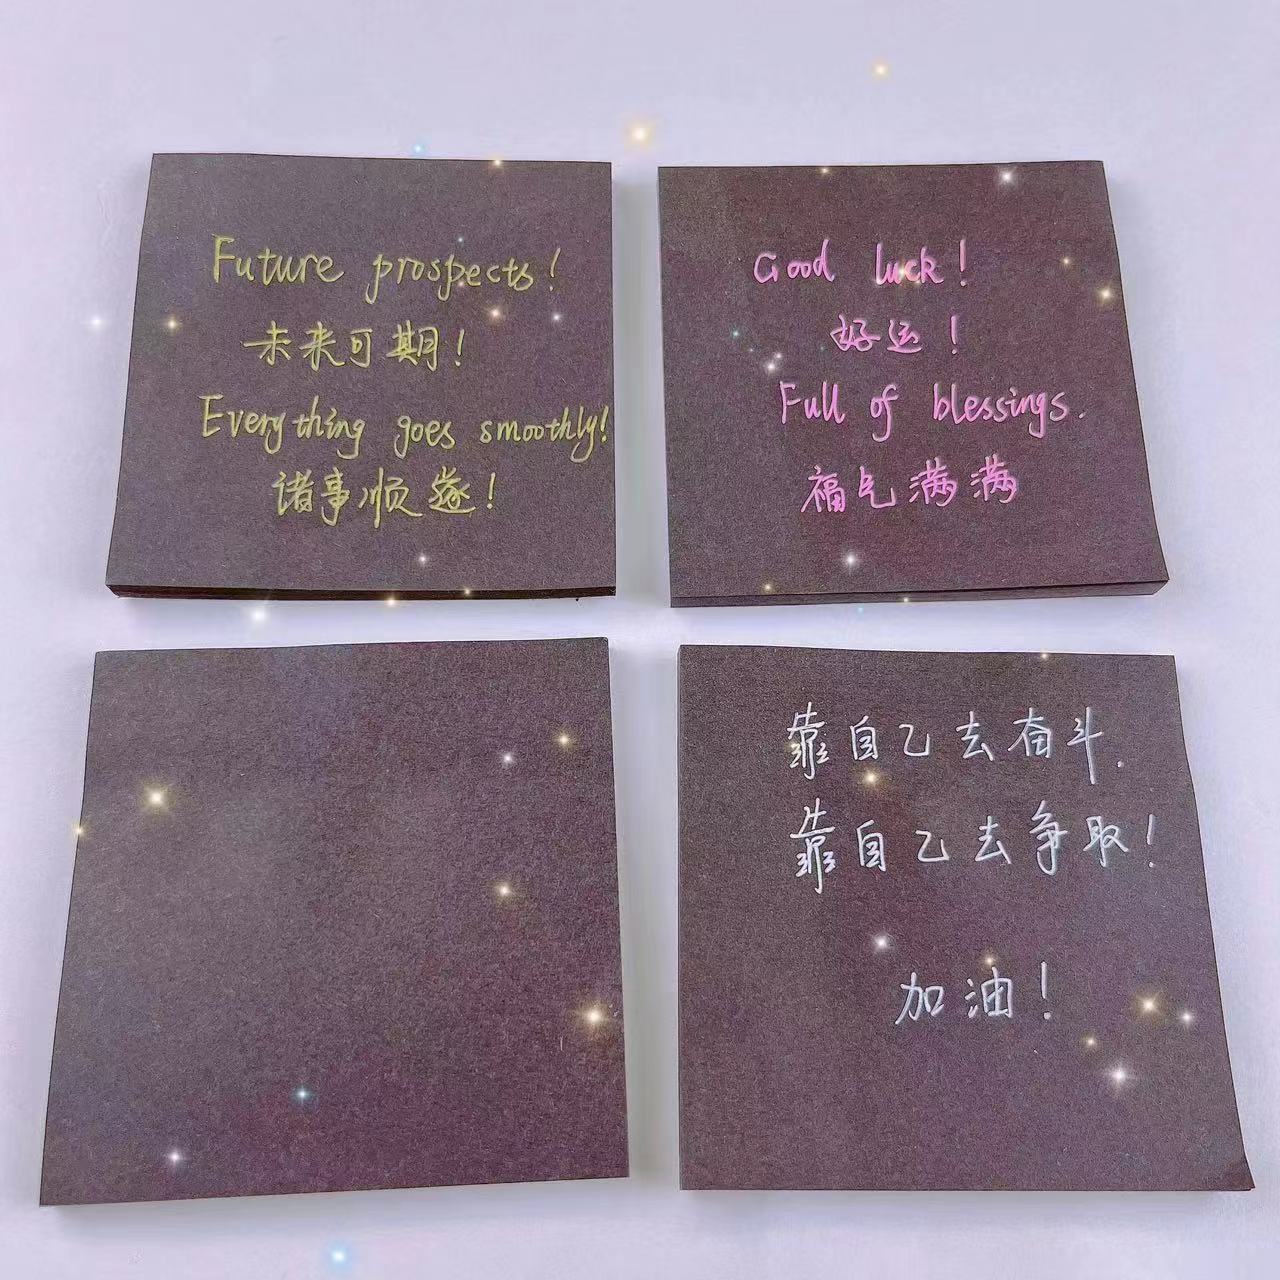 Future prospects!
未来可期！
Everything goes smoothly!
诸事顺遂！
Good luck!
好运！
Full of blessings.
福气满满
靠自己去奋斗.
靠自己去争取！
加油！